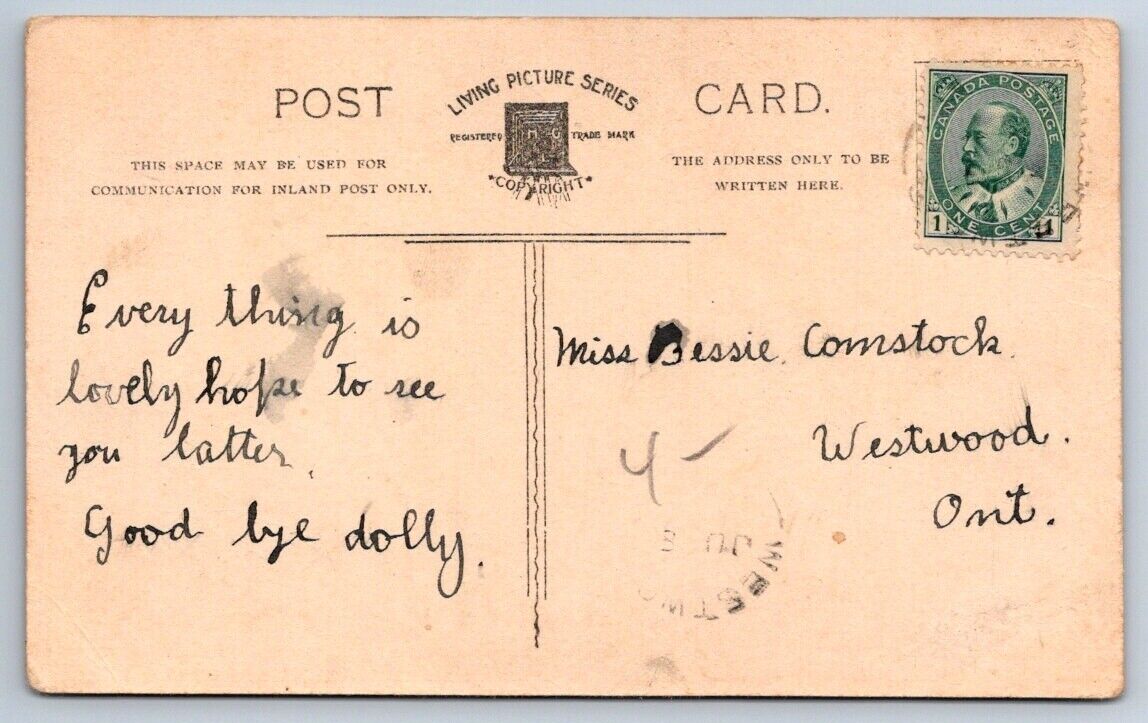 POST
LIVING PICTURE SERIES
CARD.
REGISTERED TRADE MARK
COPYRIGHT
THIS SPACE MAY BE USED FOR
COMMUNICATION FOR INLAND POST ONLY.
THE ADDRESS ONLY TO BE
WRITTEN HERE.
CANADA POSTAGE
1 ONE CENT 1
Every thing is
lovely hope to see
you latter.
Good bye dolly.
Miss Bessie Comstock
Westwood.
Ont.
4 -
WESTWO
JU 8